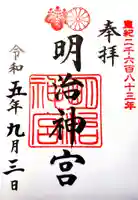 皇紀二千六百八十三年
奉拝
明治神宮
令和五年九月三日